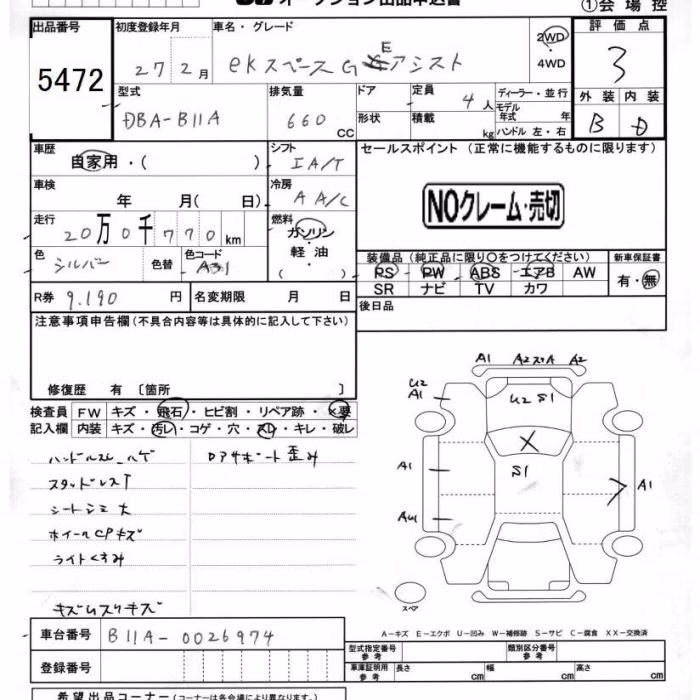 オークション出品申込書
①会場控
出品番号 初度登録年月 車名・グレード 2WD 評価点
5472 27 2月 ekスペース G Eアシスト 4WD 3
型式 排気量 ドア 定員 4人 ディーラー・並行 外装 内装
DBA-B11A 660 CC 形状 積載 kg モデル年式 年 B D
ハンドル 左・右
車歴 自家用・( ) シフト IA/T セールスポイント(正常に機能するものに限ります)
車検 年 月(日) 冷房 A A/C
NOクレーム・売切
走行 20万0千770km 燃料 ガソリン・軽油・( )
色 シルバー 色替 色コード A31
装備品(純正品に限り○をつけてください) 新車保証書
PS PW ABS エアB AW 有・無
SR ナビ TV カワ
R券 9,190円 名変期限 月 日 後日品
注意事項申告欄(不具合内容等は具体的に記入して下さい)
修復歴 有〔箇所 〕
検査員 FW キズ・飛石・ヒビ割・リペア跡・×要
記入欄 内装 キズ・汚レ・コゲ・穴・スレ・キレ・破レ
ハンドルスレ、ハゲ
スタッドレスT
シートシミ大
ホイールCPキズ
ライトくすみ
キズムスリキズ
A1 A2 スリA A2
U2
A1
U2 S1
X
A1 S1 A1
スペア
A-キズ E-エクボ U-凹み W-補修跡 S-サビ C-腐食 XX-交換済
車台番号 B11A-0026974
登録番号
型式指定番号 参考 類別区分番号 参考
車庫証明用 参考 長さ cm 幅 cm 高さ cm
希望出品コーナー(コーナーは各会場により異なります。)